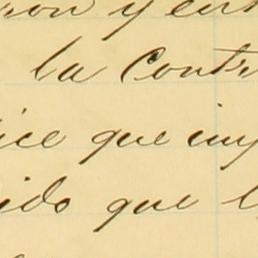 ron y ent
la Contr
ice que imp
ido que l